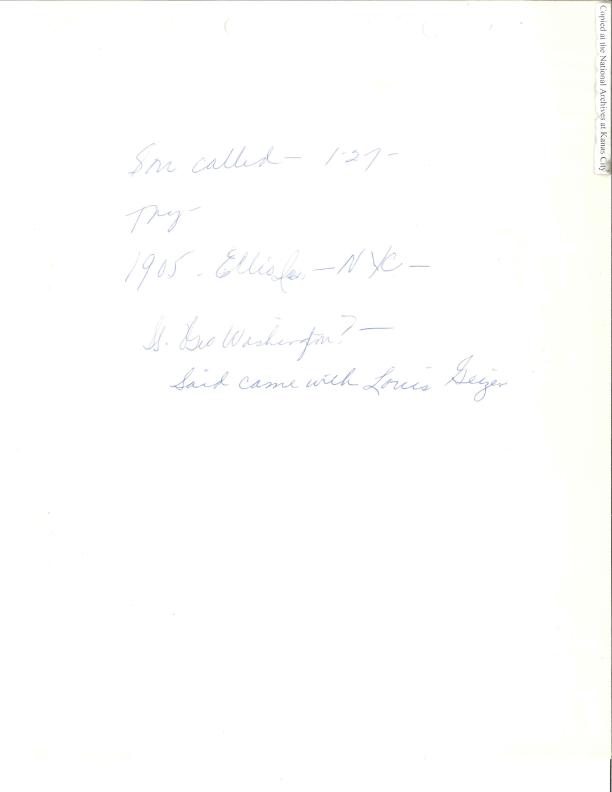 Copied at the National Archives at Kanas City
Son called – 1-27 –
Try –
1905 - Ellis Is. – NYC –
SS. Geo Washington? –
Said came with Louis Geizer